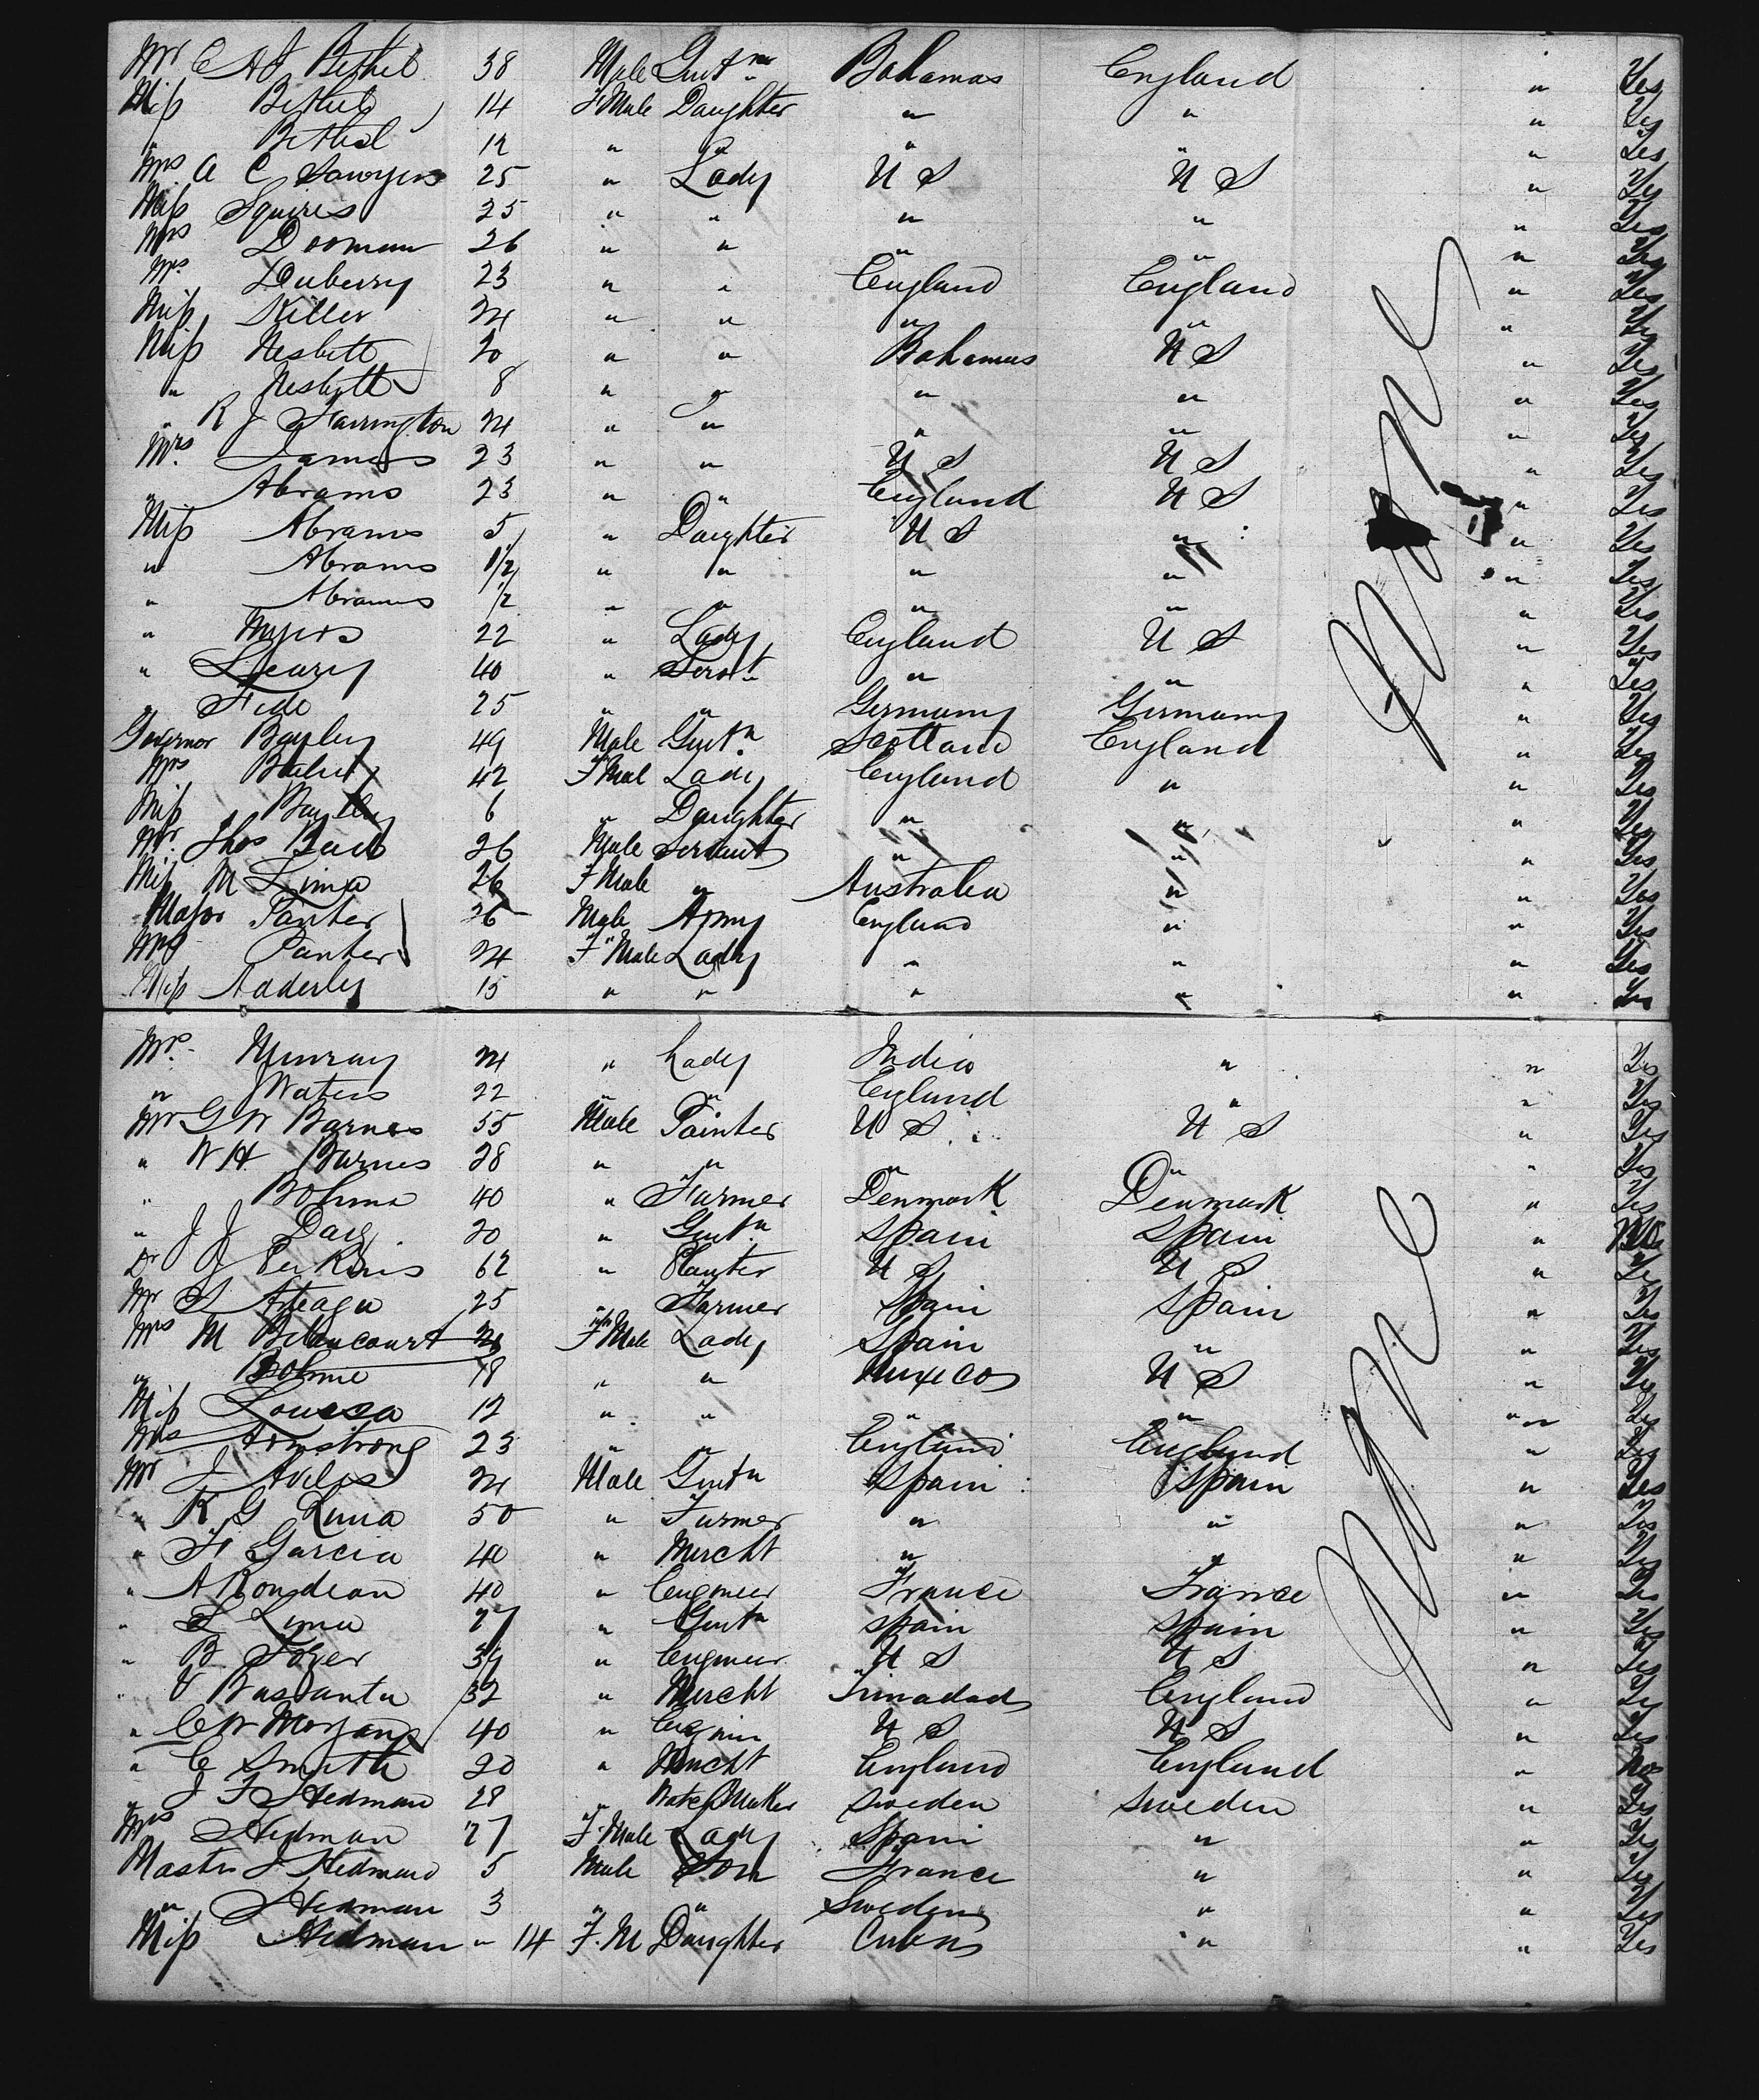 Mr C A J Bethel 38 Male Gent n Bahamas England " Yes
Miss Bethel 14 F Male Daughter " " " Yes
" Bethel 12 " " " " " Yes
Mrs A C Sawyers 25 " Lady U S U S " Yes
Miss Squires 25 " " " " " Yes
Mrs Dooman 26 " " " " " Yes
Mrs Duberry 23 " " England England " Yes
Miss Killer 24 " " " " " Yes
Miss Nesbett 20 " " Bahamas U S " Yes
" Nesbett 8 " " " " " Yes
" R J Farrington 24 " " " " " Yes
Mrs James 23 " " U S U S " Yes
" Abrams 23 " " England U S " Yes
Miss Abrams 5 " Daughter U S " " Yes
" Abrams 1 1/2 " " " " " Yes
" Abrams 1/2 " " " " " Yes
" Myers 22 " Lady England U S " Yes
" Leary 40 " Servt " " " Yes
" Fide 25 " " Germany Germany " Yes
Governor Bayley 49 Male Gent n Scotland England " Yes
Mrs 42 F Mal Lady England " " Yes
Miss Bayley 6 " Daughter " " " Yes
Mr. Thos 26 Male Servant " " " Yes
Miss M Lima 26 F Male " Australia " " Yes
Major Panter 26 Male Army England " " Yes
Mrs Panter 24 F Male Lady " " " Yes
Miss Adderley 15 " " " " " Yes
None
Mrs. Murray 24 " Lady India " " Yes
" Waters 22 " " England " " Yes
Mr G W Barnes 55 Male Painter U S U S " Yes
" W H Barnes 28 " " " " " Yes
" Bohme 40 " Farmer Denmark Denmark " Yes
" J J 20 " Gent n Spain Spain "
Dr J Perkins 62 " Planter U S U S " Yes
Mr S Arteaga 25 " Farmer Spain Spain " Yes
Mrs M Betancourt F Male Lady Spain " " Yes
" Bohme 18 " " Mexico U S " Yes
Miss Louisa 12 " " " " " Yes
Mrs Armstrong 23 " " England England " Yes
Mr J Aviles 24 Male Gent n Spain Spain " Yes
" R G Luna 50 " Farmer " " " Yes
" F Garcia 40 " Mercht " " " Yes
" A Rondeau 40 " Engineer France France " Yes
" L Lima 27 " Gent n Spain Spain " Yes
" B 31 " Engineer U S U S " Yes
" V Bassanta 32 " Mercht Trinadad England " Yes
" C W Morgans 40 " Engnier U S U S " Yes
" C Smith 20 " Mercht England England " No
" J F Hedman 28 " Watch Maker Sweden Sweden " Yes
Mrs Hedman 27 F. Male Lady Spain " " Yes
Master J Hedman 5 Male Son France " " Yes
" Hedman 3 " " Sweden " " Yes
Miss Hedman " 14 F. M Daughter Cuba " " Yes
None